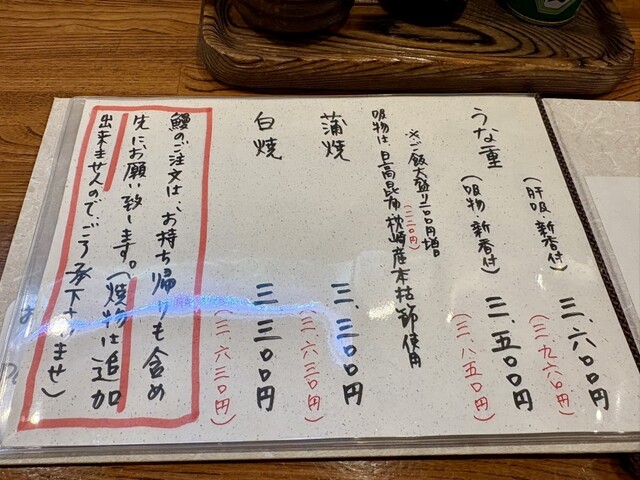 (肝吸・新香付) 三、六〇〇円
(三、九六〇円)
うな重
(吸物・新香付) 三、五〇〇円
(三、八五〇円)
※ご飯大盛り二〇〇円増口
(二二〇円)
吸物は、日高昆布、枕崎産本枯節使用
蒲焼 三、三〇〇円
(三、六三〇円)
白焼 三、三〇〇円
(三、六三〇円)
鰻のご注文は、お持ち帰りも含め
先にお願い致します。(焼物は追加
出来ませんので、ご了承下さいませ)